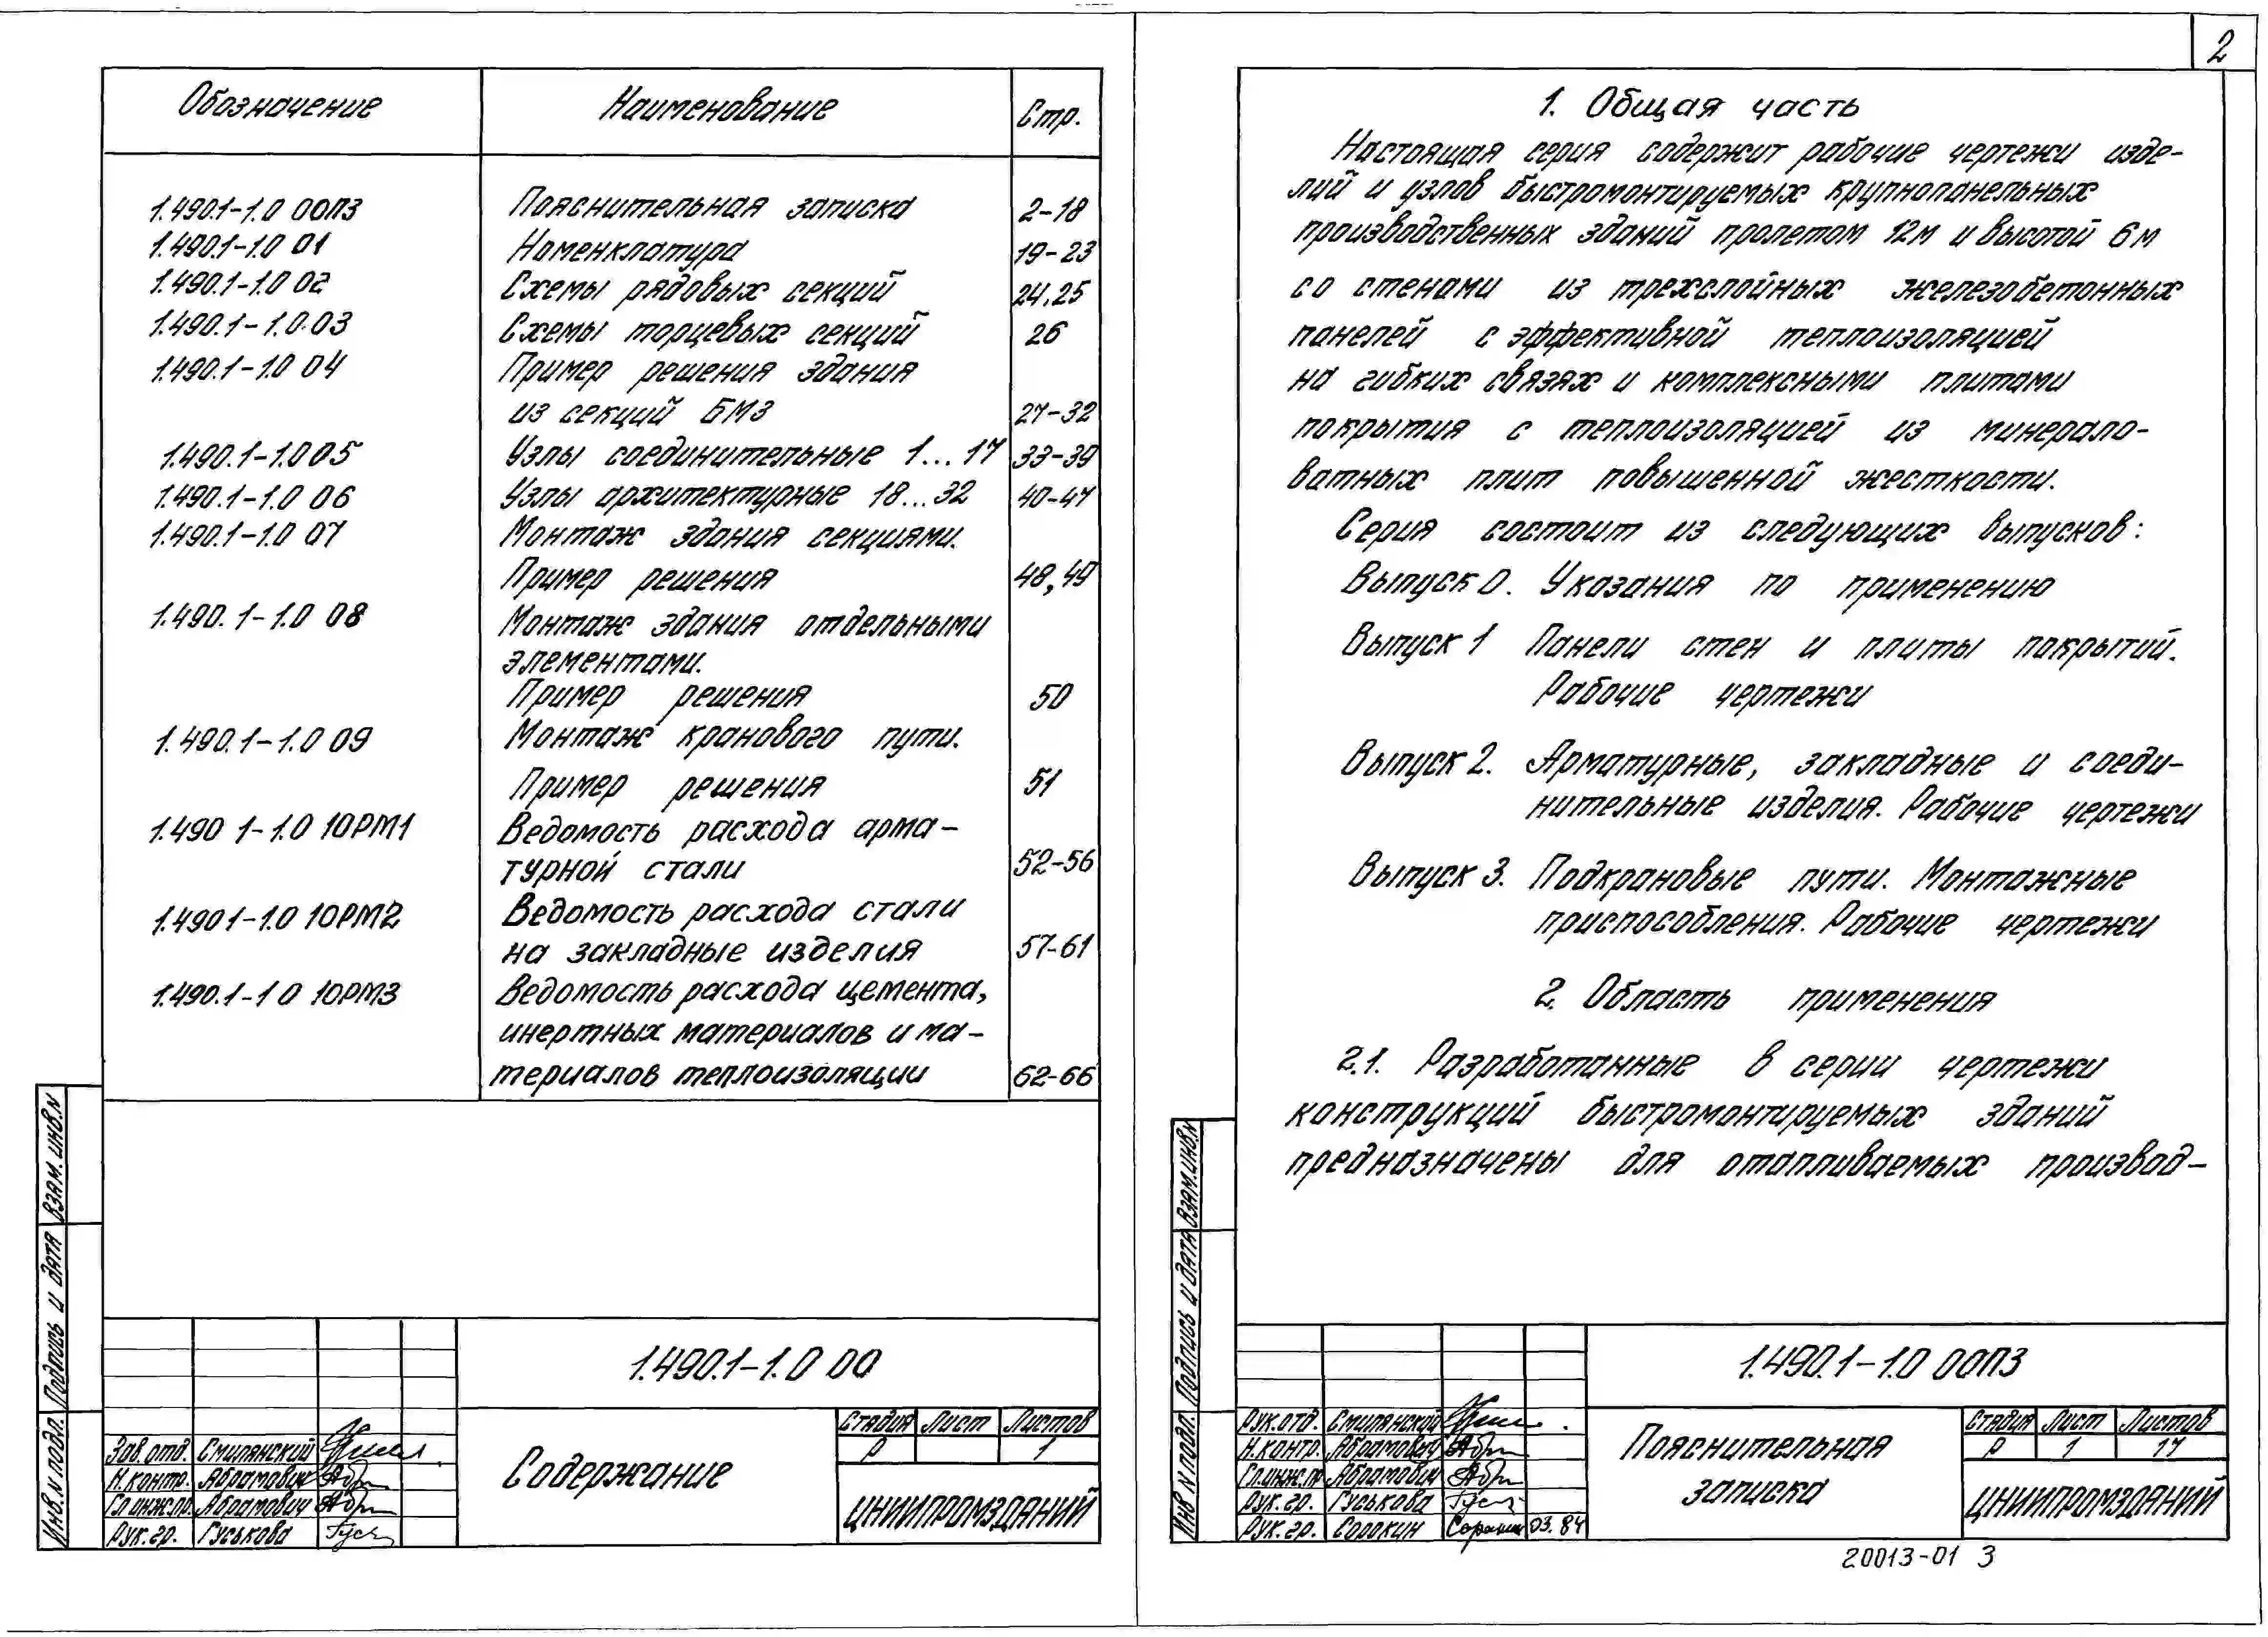 Обозначение Наименование Стр.
1.490.1-1.0 00ПЗ Пояснительная записка 2-18
1.490.1-1.0 01 Номенклатура 19-23
1.490.1-1.0 02 Схемы рядовых секций 24,25
1.490.1-1.0.03 Схемы торцевых секций 26
1.490.1-1.0 04 Пример решения здания
из секций БМЗ 27-32
1.490.1-1.0 05 Узлы соединительные 1...17 33-39
1.490.1-1.0 06 Узлы архитектурные 18...32 40-47
1.490.1-1.0 07 Монтаж здания секциями.
Пример решения 48,49
1.490.1-1.0 08 Монтаж здания отдельными
элементами.
Пример решения 50
1.490.1-1.0 09 Монтаж кранового пути.
Пример решения 51
1.490 1-1.0 10РМ1 Ведомость расхода арма-
турной стали 52-56
1.490 1-1.0 10РМ2 Ведомость расхода стали
на закладные изделия 57-61
1.490.1-1 0 10РМ3 Ведомость расхода цемента,
инертных материалов и ма-
териалов теплоизоляции 62-66
Взам. инв. N
Подпись и дата
Инв. N подл.
1.490.1-1.0 00
Содержание
Стадия Лист Листов
Р 1
ЦНИИПРОМЗДАНИЙ
Зав. отд. Смилянский
Н. контр. Абрамович
Гл. инж. пр. Абрамович
Рук. гр. Гуськова
2
1. Общая часть
Настоящая серия содержит рабочие чертежи изде-
лий и узлов быстромонтируемых крупнопанельных
производственных зданий пролетом 12м и высотой 6м
со стенами из трехслойных железобетонных
панелей с эффективной теплоизоляцией
на гибких связях и комплексными плитами
покрытия с теплоизоляцией из минерало-
ватных плит повышенной жесткости.
Серия состоит из следующих выпусков:
Выпуск 0. Указания по применению
Выпуск 1 Панели стен и плиты покрытий.
Рабочие чертежи
Выпуск 2. Арматурные, закладные и соеди-
нительные изделия. Рабочие чертежи
Выпуск 3. Подкрановые пути. Монтажные
приспособления. Рабочие чертежи
2. Область применения
2.1. Разработанные в серии чертежи
конструкций быстромонтируемых зданий
предназначены для отапливаемых производ-
Взам. инв. N
Подпись и дата
Инв N подл.
1.490.1-1.0 00ПЗ
Пояснительная
записка
Стадия Лист Листов
Р 1 17
ЦНИИПРОМЗДАНИЙ
Рук. отд. Смилянский
Н. контр. Абрамович
Гл. инж. пр Абрамович
Рук. гр. Гуськова
Рук. гр. Сорокин 03.84
20013-01 3